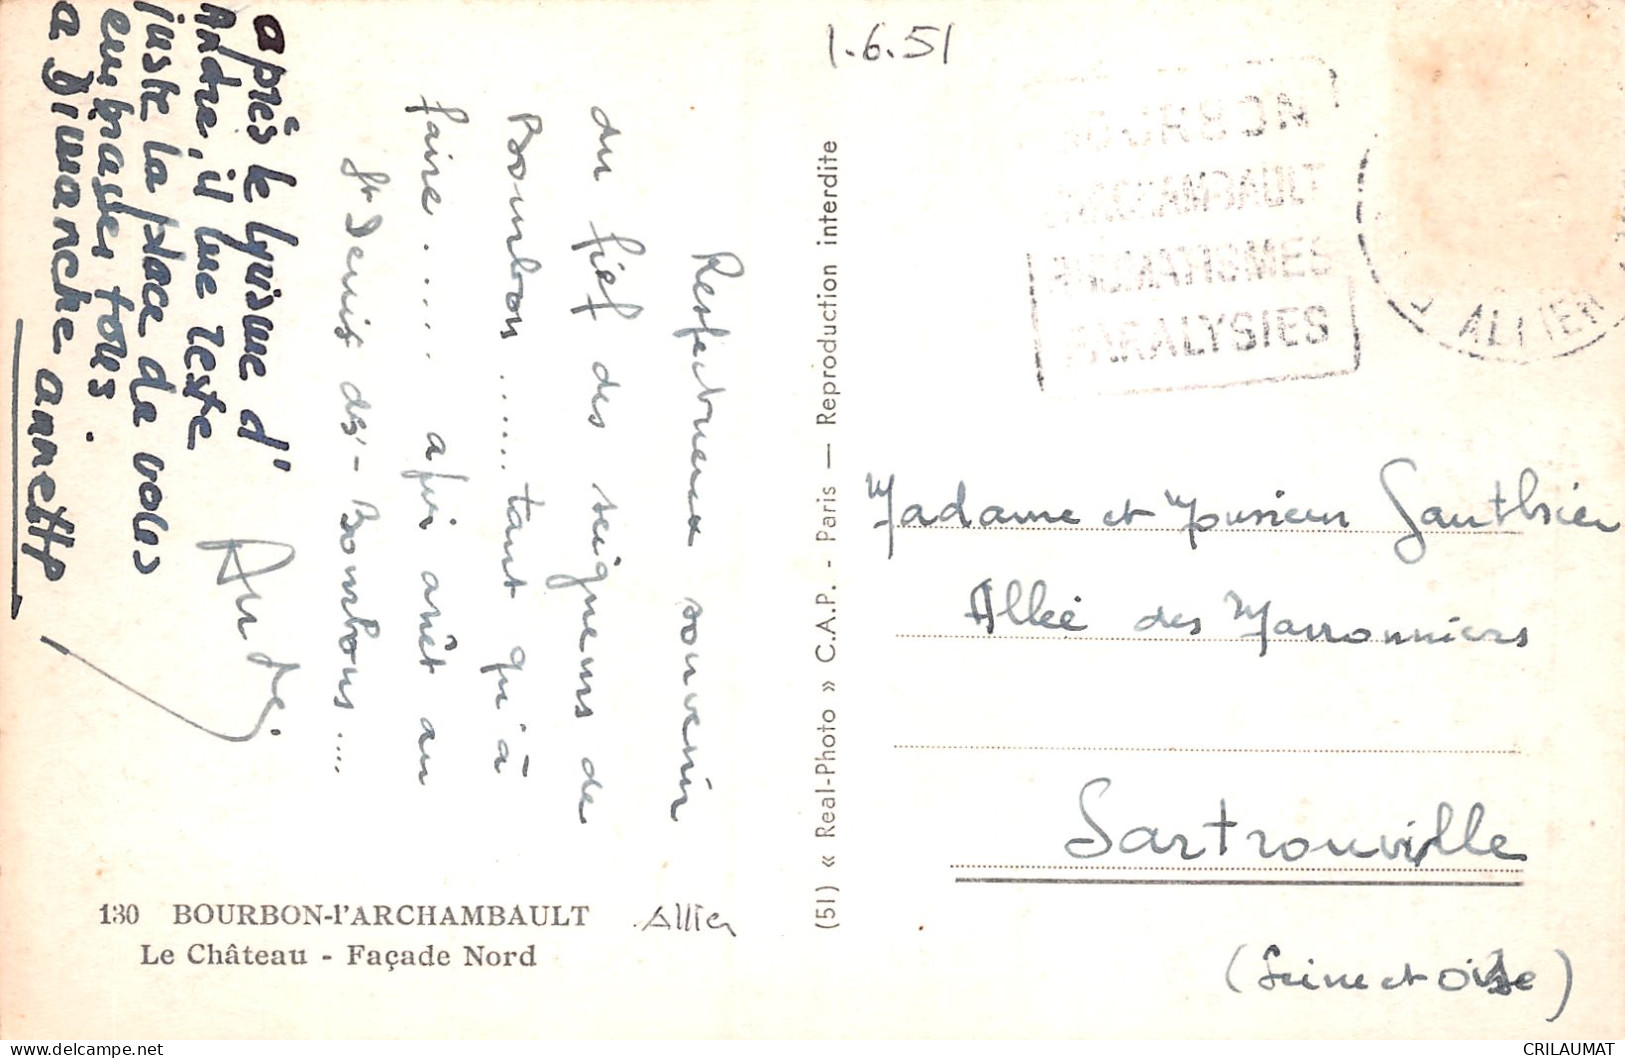 1.6.51
Respectueux souvenir
du fief des seigneurs de
Bourbon ...... tant qu'à
faire .... a fui arrêt au
St Denis des - Bourbons ....
André.
après le lyrisme d'
André, il me reste
juste la place de vous
embrasser tous
a Dimanche annette
130 BOURBON-l'ARCHAMBAULT Allier
Le Château - Façade Nord
(51) « Real-Photo » C.A.P. - Paris — Reproduction interdite
BOURBON
L'ARCHAMBAULT
RHUMATISMES
PARALYSIES
ALLIER
Madame et Monsieur Gauthier
Allée des Marronniers
Sartrouville
(Seine et Oise)
CRILAUMAT